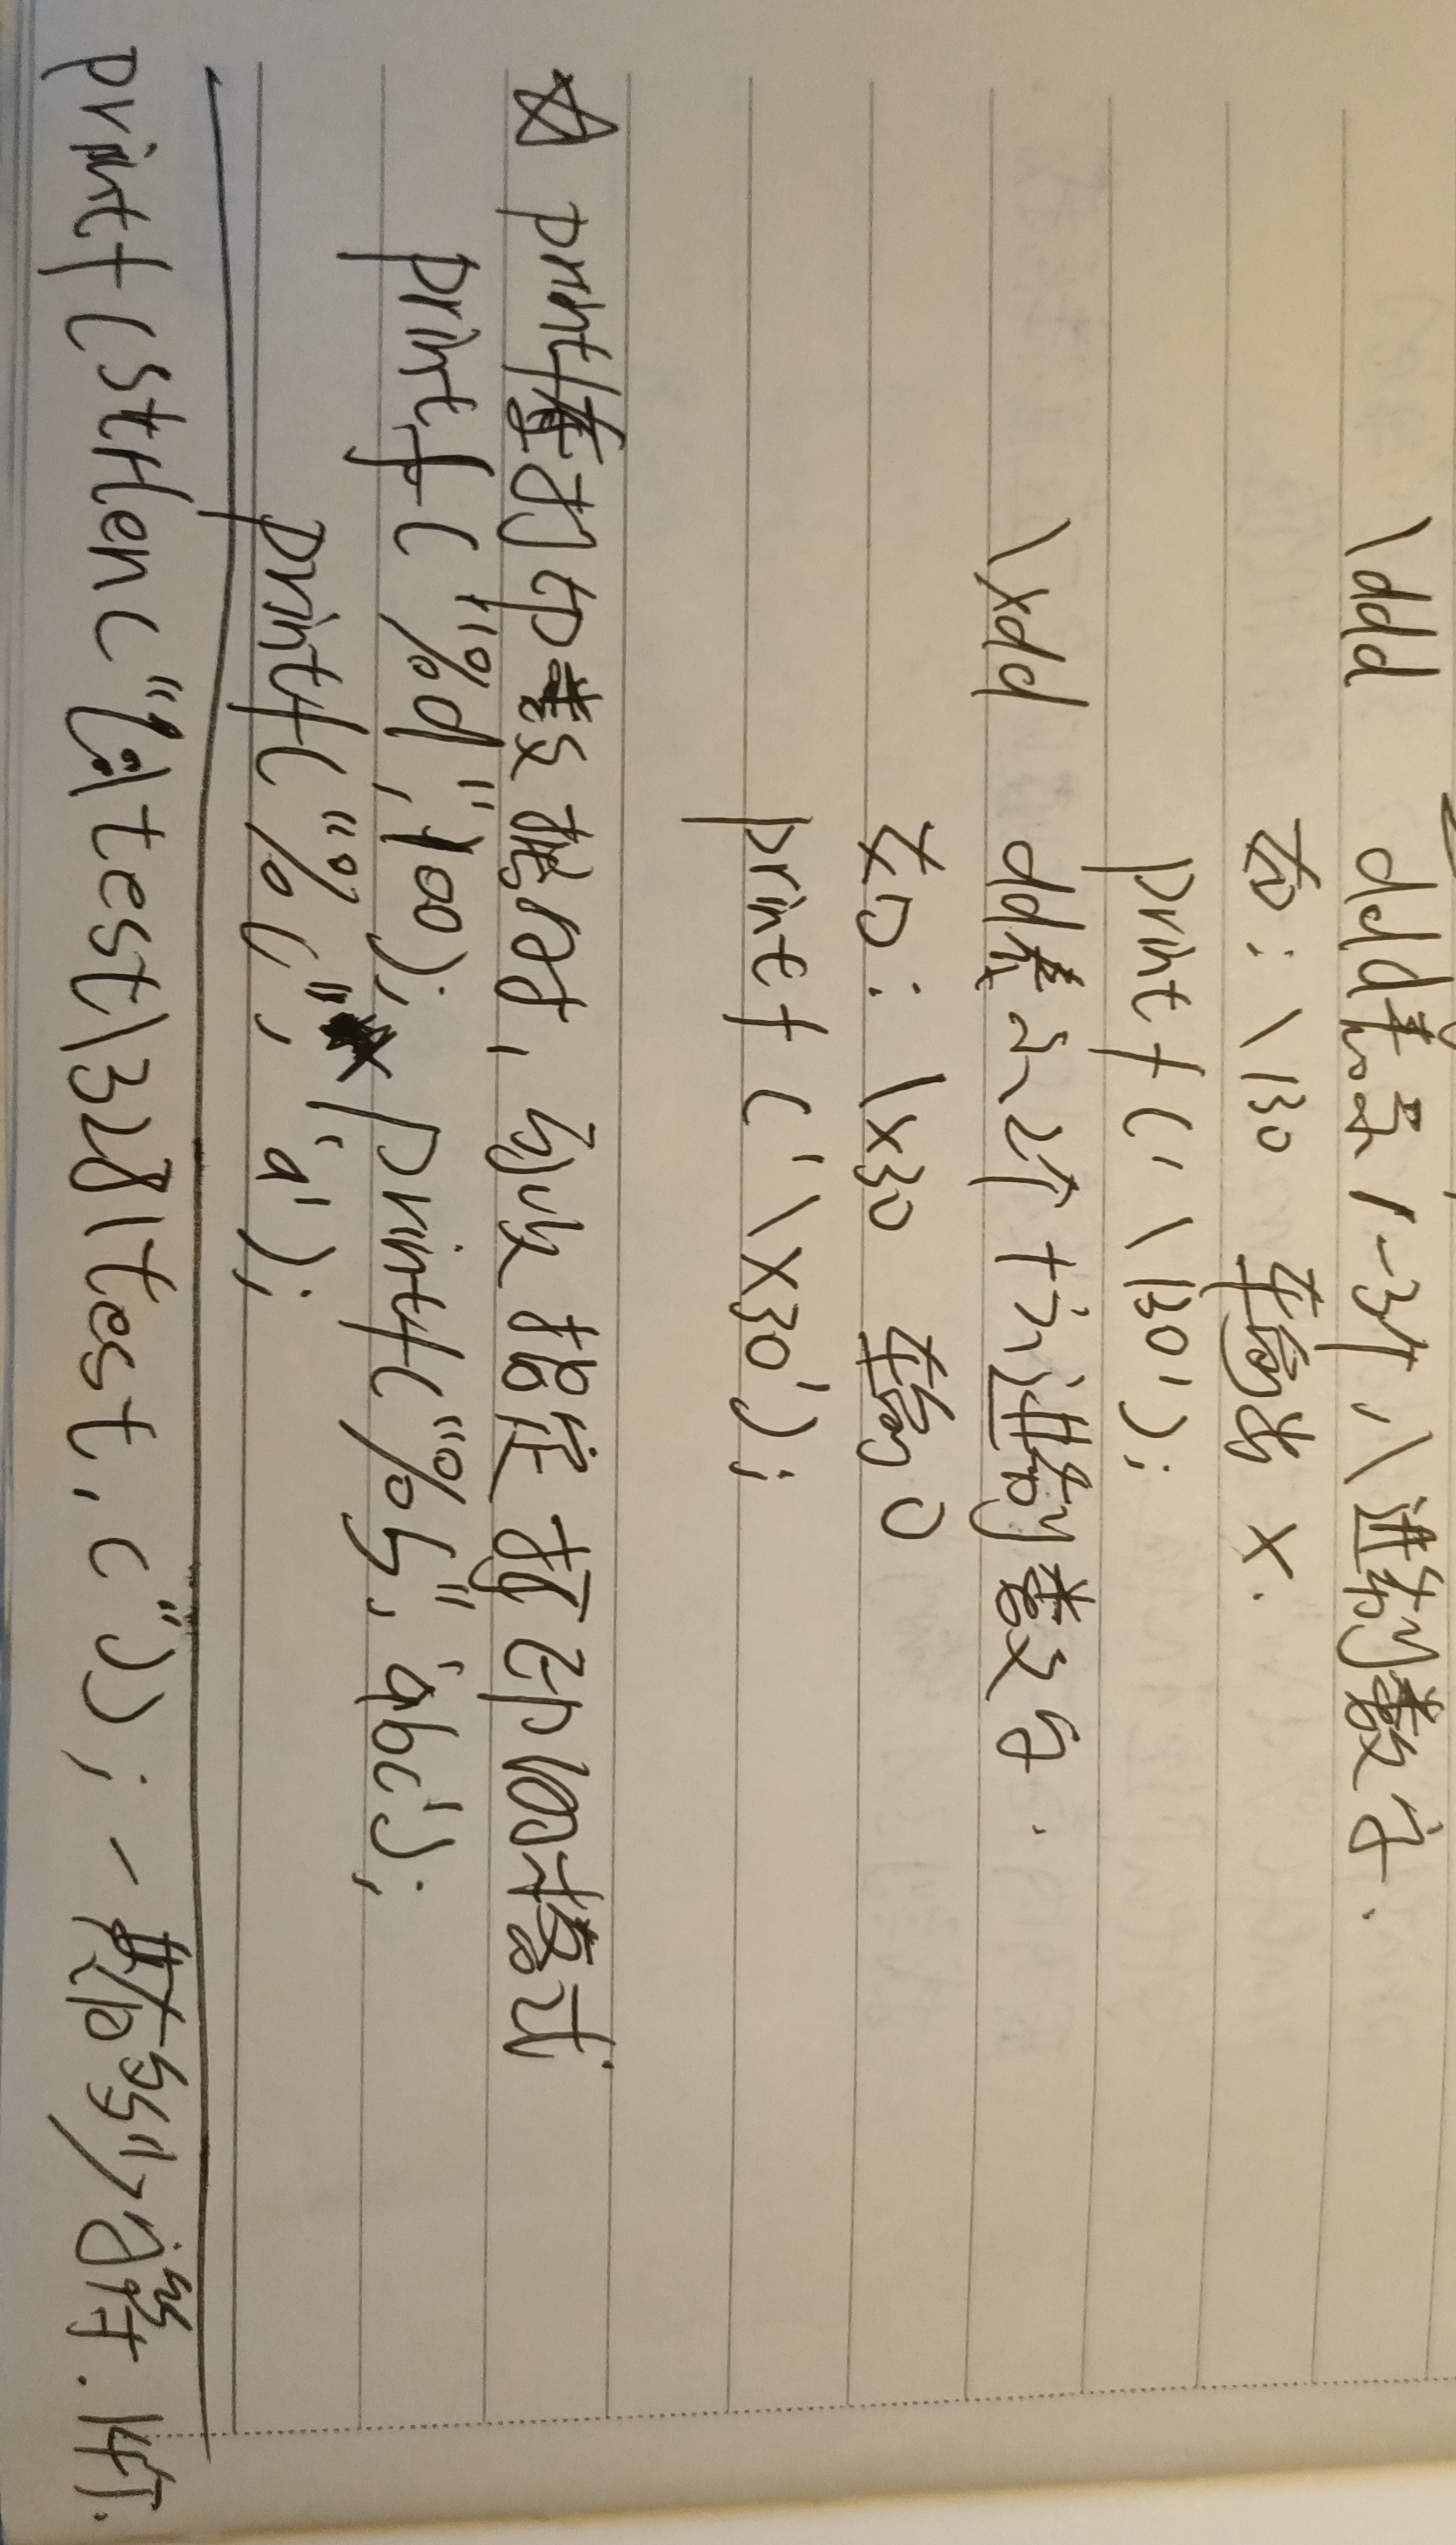 \ddd ddd表示1-3个八进制数字.
如: \130 输出 X.
printf('\130');
\xdd dd表示2个十六进制数字.
如: \x30 输 0
printf('\x30');
☆ printf在打印数据时, 可以指定打印的格式
printf("%d", 100); printf("%s", 'abc');
printf("%c", 'a');
printf(strlen("test\328\test.c")); 一共有多少字符. 14个.